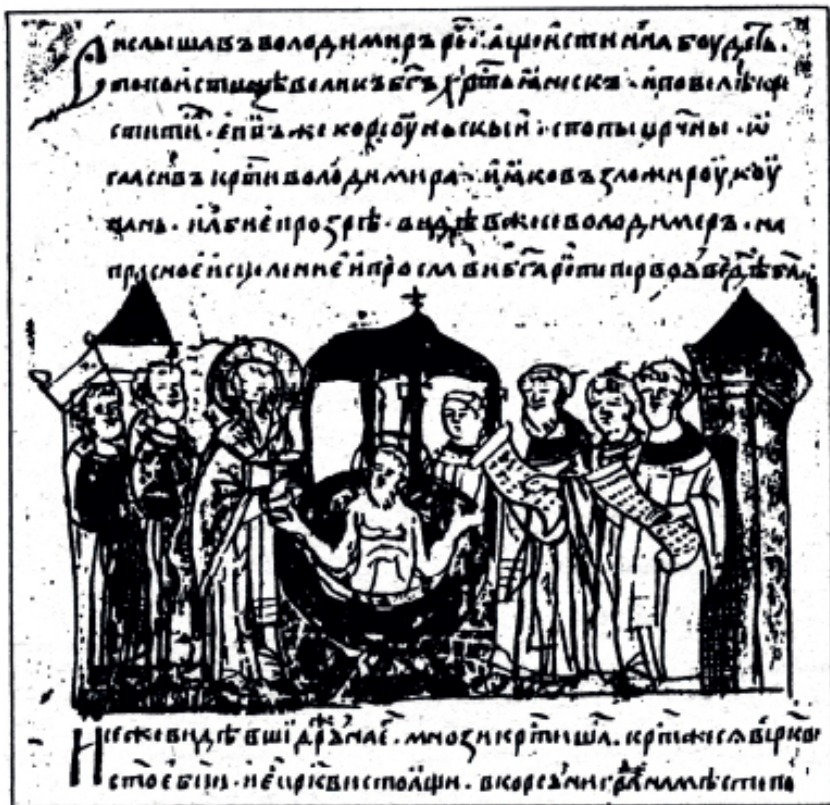 И слышавъ володимиръ рч҃е аще истинна боудеть.
то поистинѣ великъ бг҃ъ хрт҃ьꙗнескъ. и повелѣ кр
стити. еп҃пъ же корсоуньскыи. с попы црч҃ны. ѡ
гласивъ крт҃и володимира. и ꙗковъ зложи роукоу
нань. и абие прозрѣ. видѣвъ же се володимеръ. на
прасное исцеление и прослави бг҃а рч҃е
Се же видѣвши дружина е҃. мнози крт҃ишѧ. крт҃ жесѧ в црк҃ви
ст҃ое бц҃и. и е црк҃ви стоѧщи. в корсуни градѣ на мѣсте по